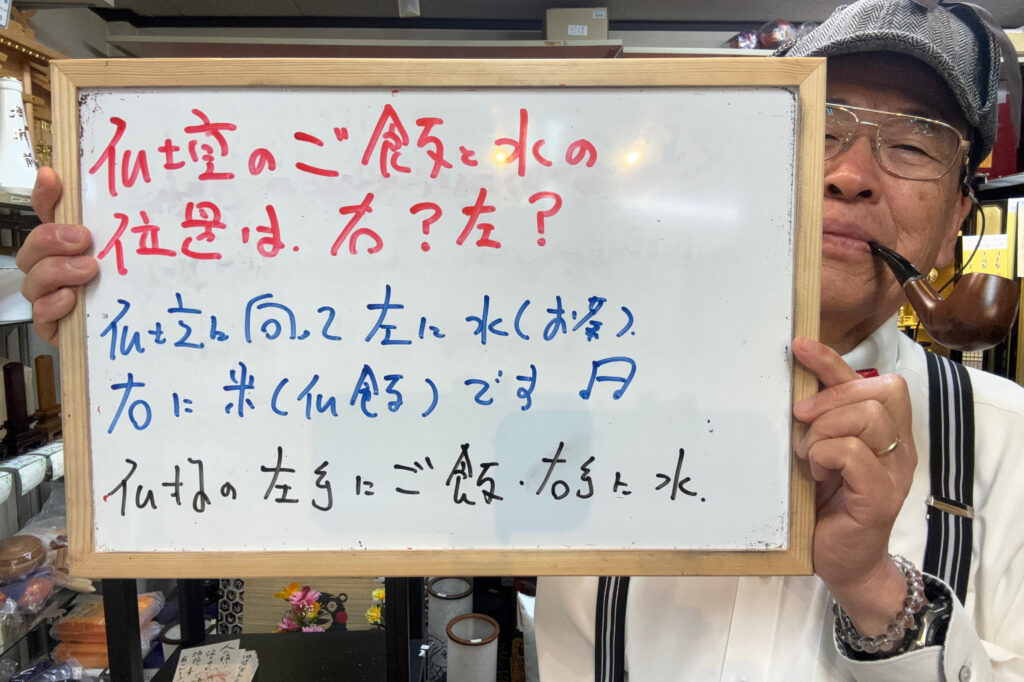 仏壇のご飯と水の
位置は、右？左？
仏壇に向って左に水(お茶)、
右に米(仏飯)です
仏様の左手にご飯・右手に水。